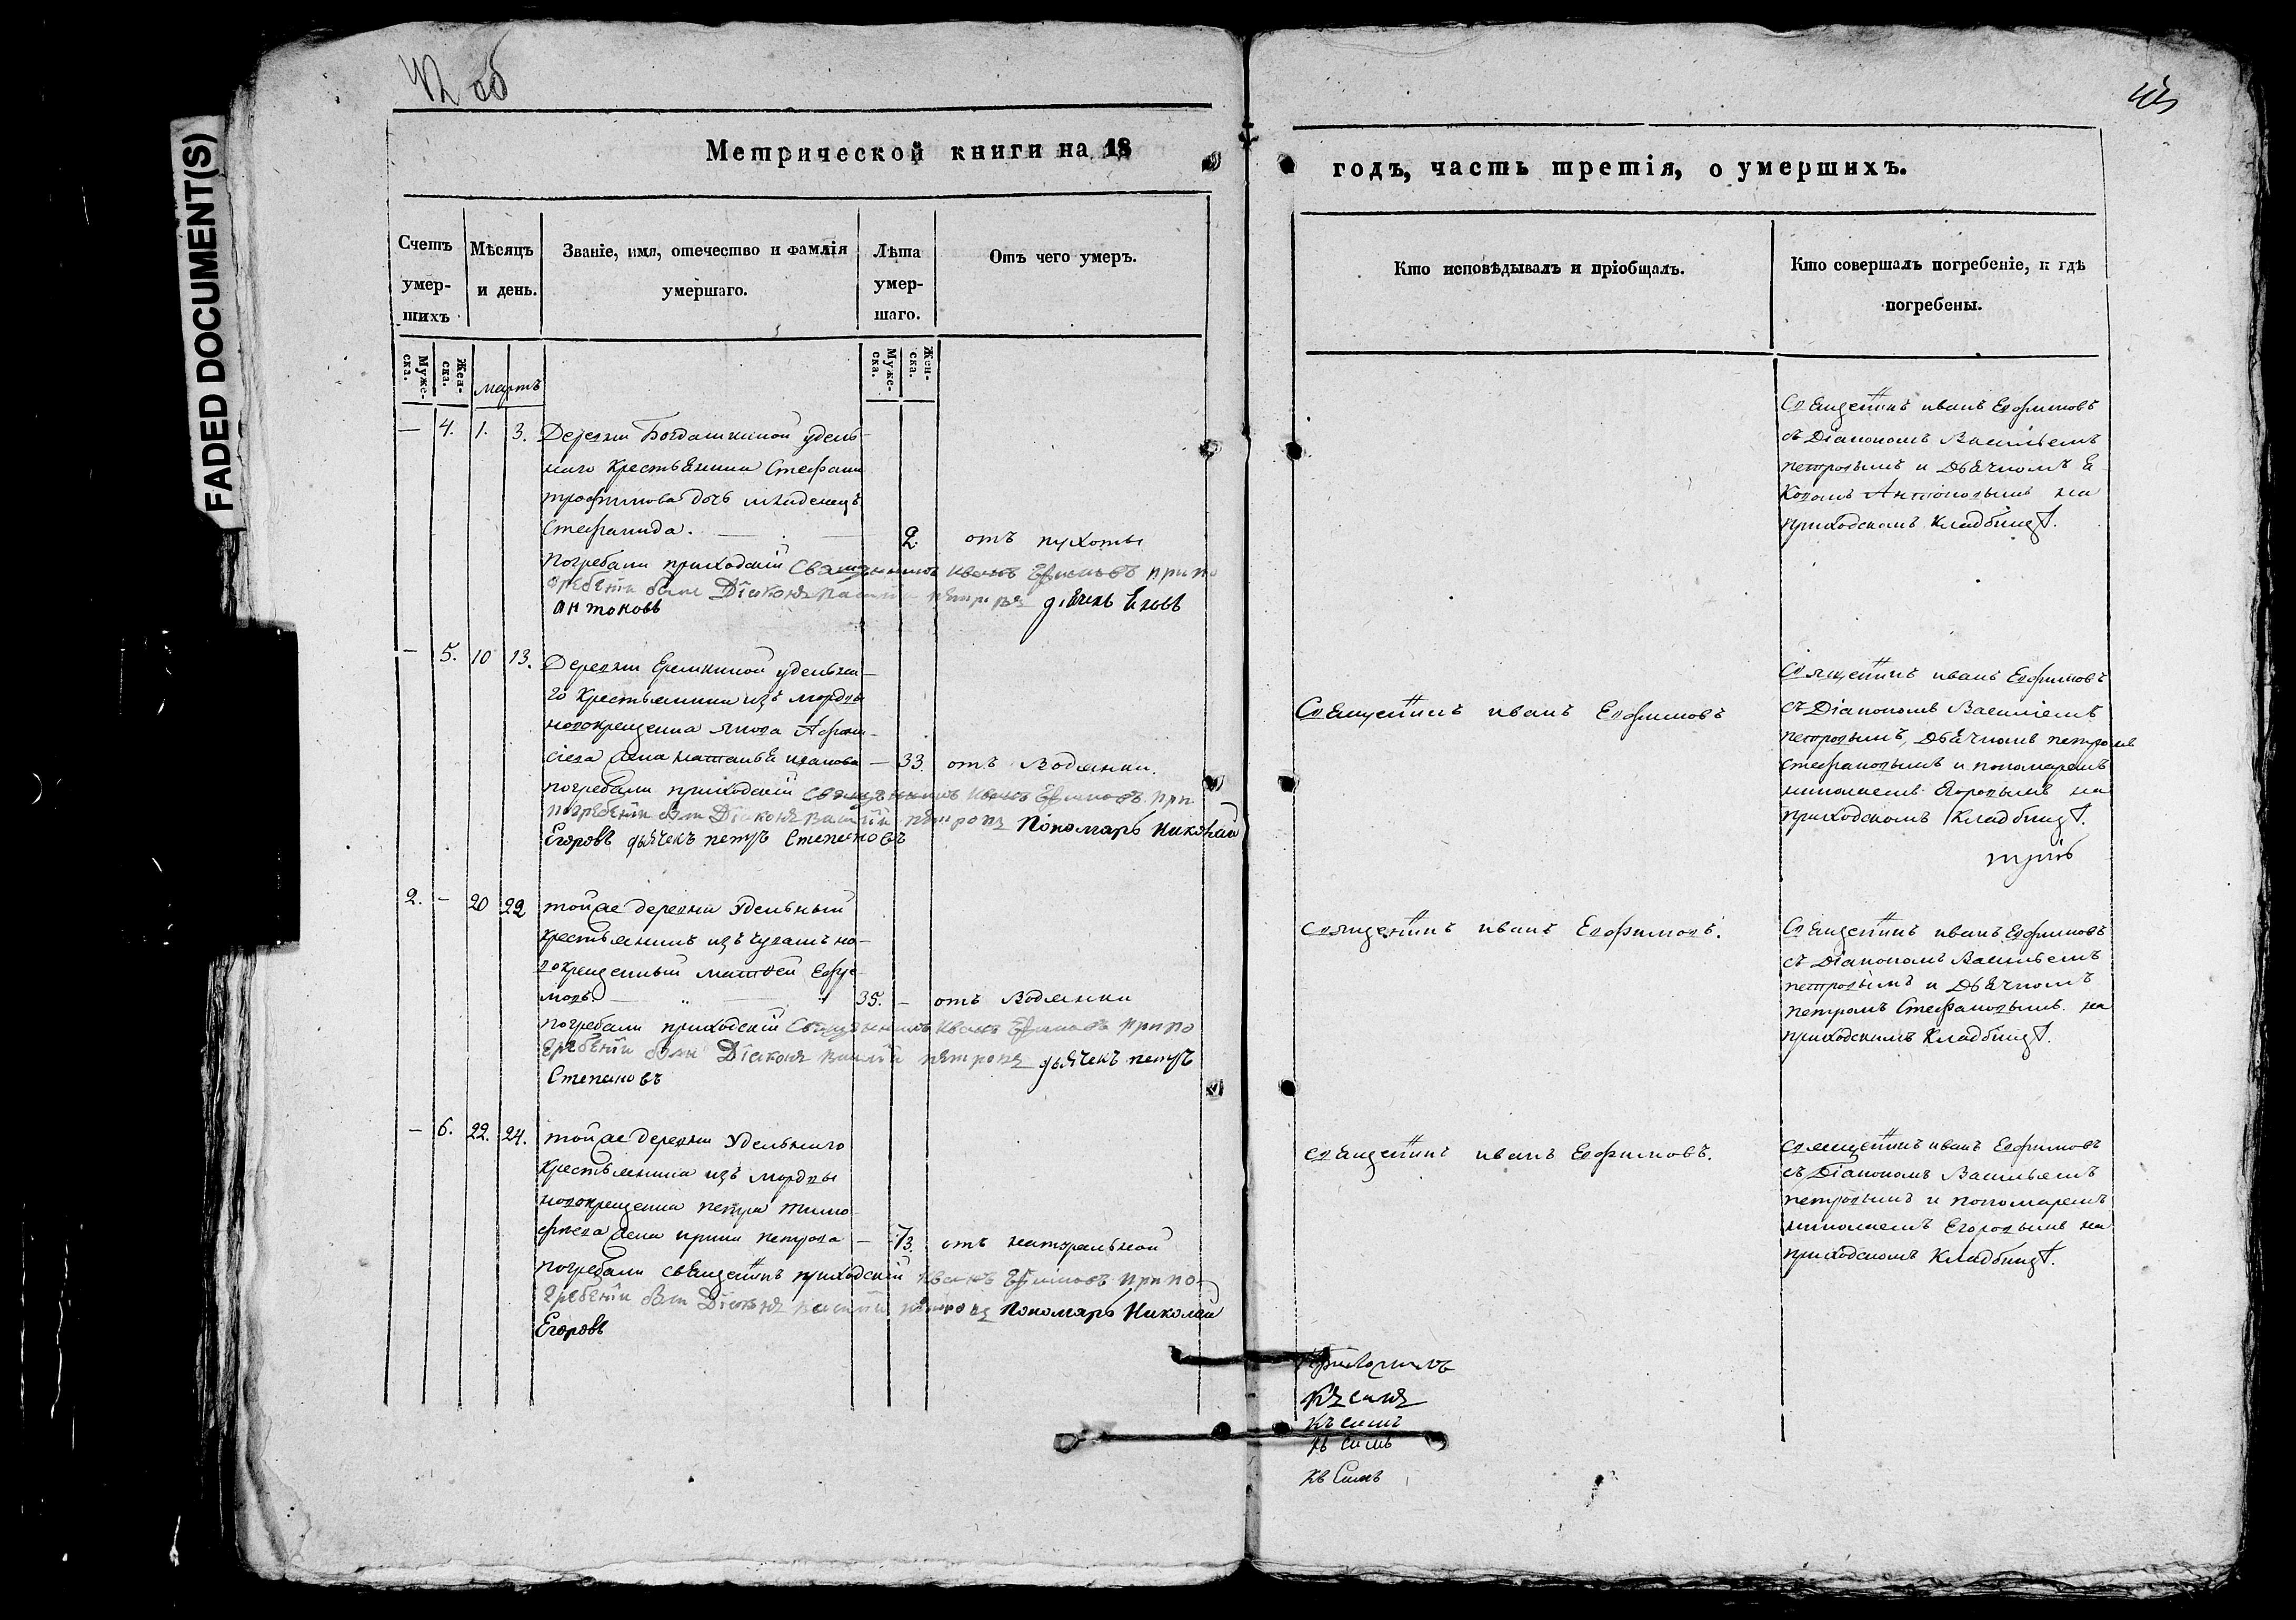 42 об
43
FADED DOCUMENT(S)
Метрической книги на 18
годъ, часть третія, о умершихъ.
Счетъ умер-шихъ
Мѣсяцъ и день.
Званіе, имя, отечество и фамлія умершаго.
Лѣта умер-шаго.
Отъ чего умеръ.
Кто исповѣдывалъ и пріобщалъ.
Кто совершалъ погребеніе, и гдѣ погребены.
Муже-ска.
Жен-ска.
Муже-ска.
Жен-ска.
мартъ
— 4. 1. 3. Деревни Богдашкиной удель-
наго крестьянина Стефана
трофимова дочь младенецъ
Стефанида. — 2. отъ сухоты
погребали приходскій Священникъ Иванъ Ефимовъ при по
гребеніи были Діаконъ Василій Петровъ дьячекъ Яковъ
Антоновъ
Священникъ иванъ Ефимовъ
съ Діакономъ Васильемъ
петровымъ и Дьячкомъ Я
ковомъ Антоновымъ на
приходскомъ кладбищѣ.
— 5. 10 13. Деревни Еремкиной удельна-
го крестьянина изъ мордвы
новокрещена якова Афона-
сіева жена наталья иванова — 33. отъ водянки.
погребали приходскій священникъ Иванъ Ефимовъ при
погребеніи были Діаконъ Василій Петровъ Пономарь Николай
Егоровъ дьячекъ петръ Степановъ
Священникъ иванъ Ефимовъ
Священникъ иванъ Ефимовъ
съ Діакономъ Васильемъ
петровымъ, Дьячкомъ петромъ
стефановымъ и пономаремъ
николаемъ Егоровымъ на
приходскомъ кладбищѣ.
2. — 20 22 тойже деревни Удельный
крестьянинъ изъ чувашъ но-
вокрещенный матвей Ефре-
мовъ. — 35. — отъ водянки
погребали приходскій Священникъ Иванъ Ефимовъ при по
гребеніи были Діаконъ Василій Петровъ дьячекъ петръ
Степановъ
Священникъ иванъ Ефимовъ.
Священникъ иванъ Ефимовъ
съ Діакономъ Васильемъ
петровымъ и Дьячкомъ
петромъ Стефановымъ на
приходскомъ кладбищѣ.
— 6. 22. 24. тойже деревни Удельнаго
крестьянина изъ мордвы
новокрещена петра тимо-
феева жена ирина петрова — 73. отъ натуральной
погребали священникъ приходскій Иванъ Ефимовъ при по
гребеніи были Діаконъ Василій Петровъ Пономарь Николай
Егоровъ
Священникъ иванъ Ефимовъ.
Священникъ иванъ Ефимовъ
съ Діакономъ Васильемъ
петровымъ и пономаремъ
николаемъ Егоровымъ на
приходскомъ кладбищѣ.
Къ симъ
Къ симъ
Къ симъ
Къ Симъ